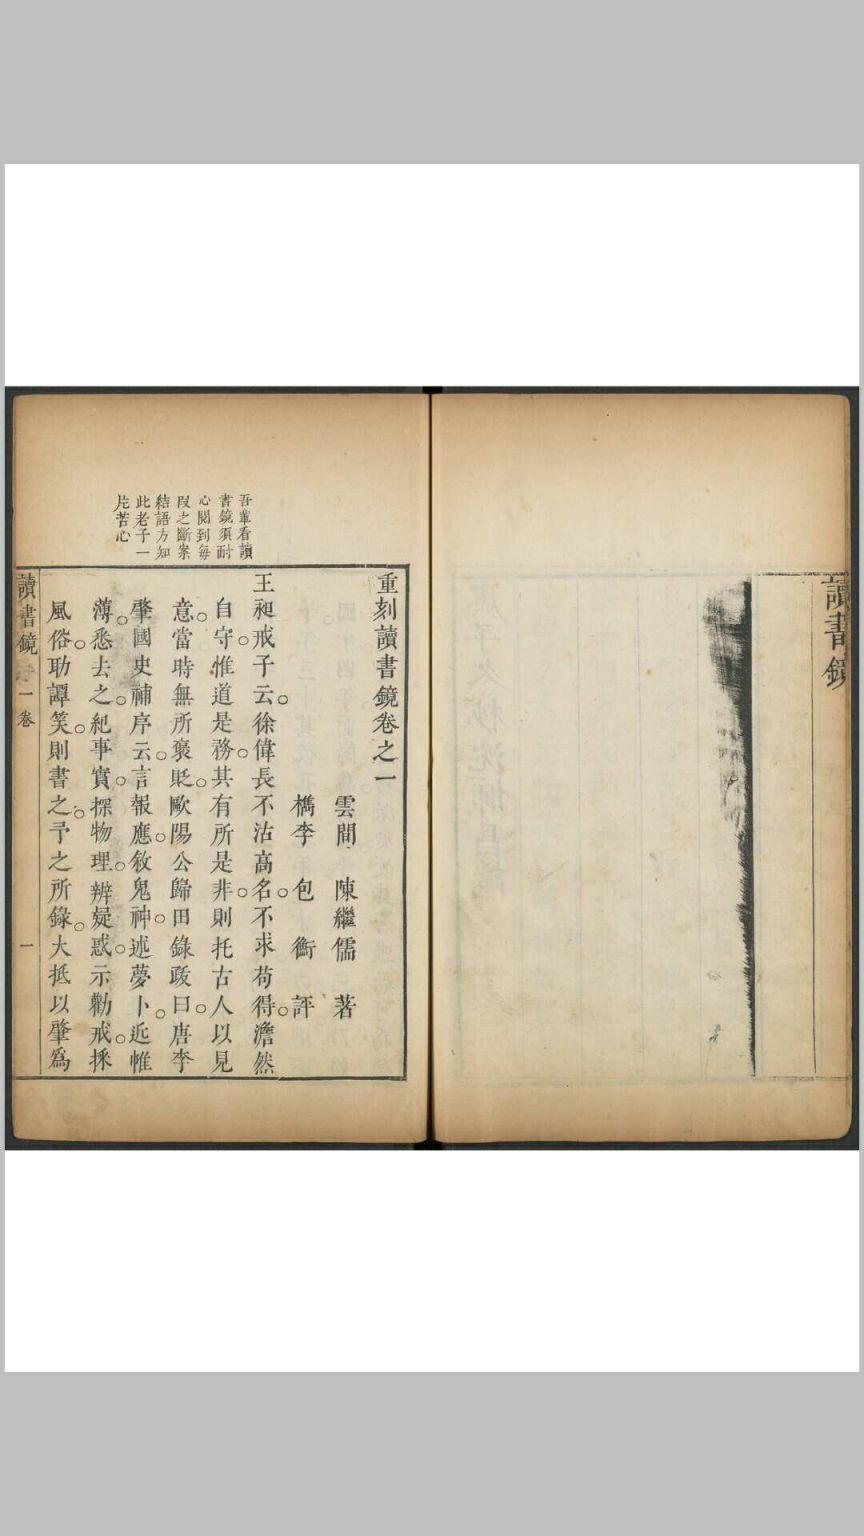 讀書鏡
重刻讀書鏡卷之一
雲間 陳繼儒 著
檇李 包衡 評
王昶戒子云徐偉長不沽高名不求苟得澹然
自守惟道是務其有所是非則托古人以見
意當時無所褒貶歐陽公歸田錄跋曰唐李
肇國史補序云言報應敘鬼神述夢卜近惟
薄悉去之紀事實探物理辨疑惑示勸戒採
風俗助譚笑則書之予之所錄大抵以肇為
吾輩看讀
書鏡須耐
心閱到每
段之斷案
結語方知
此老子一
片苦心
讀書鏡 一卷 一